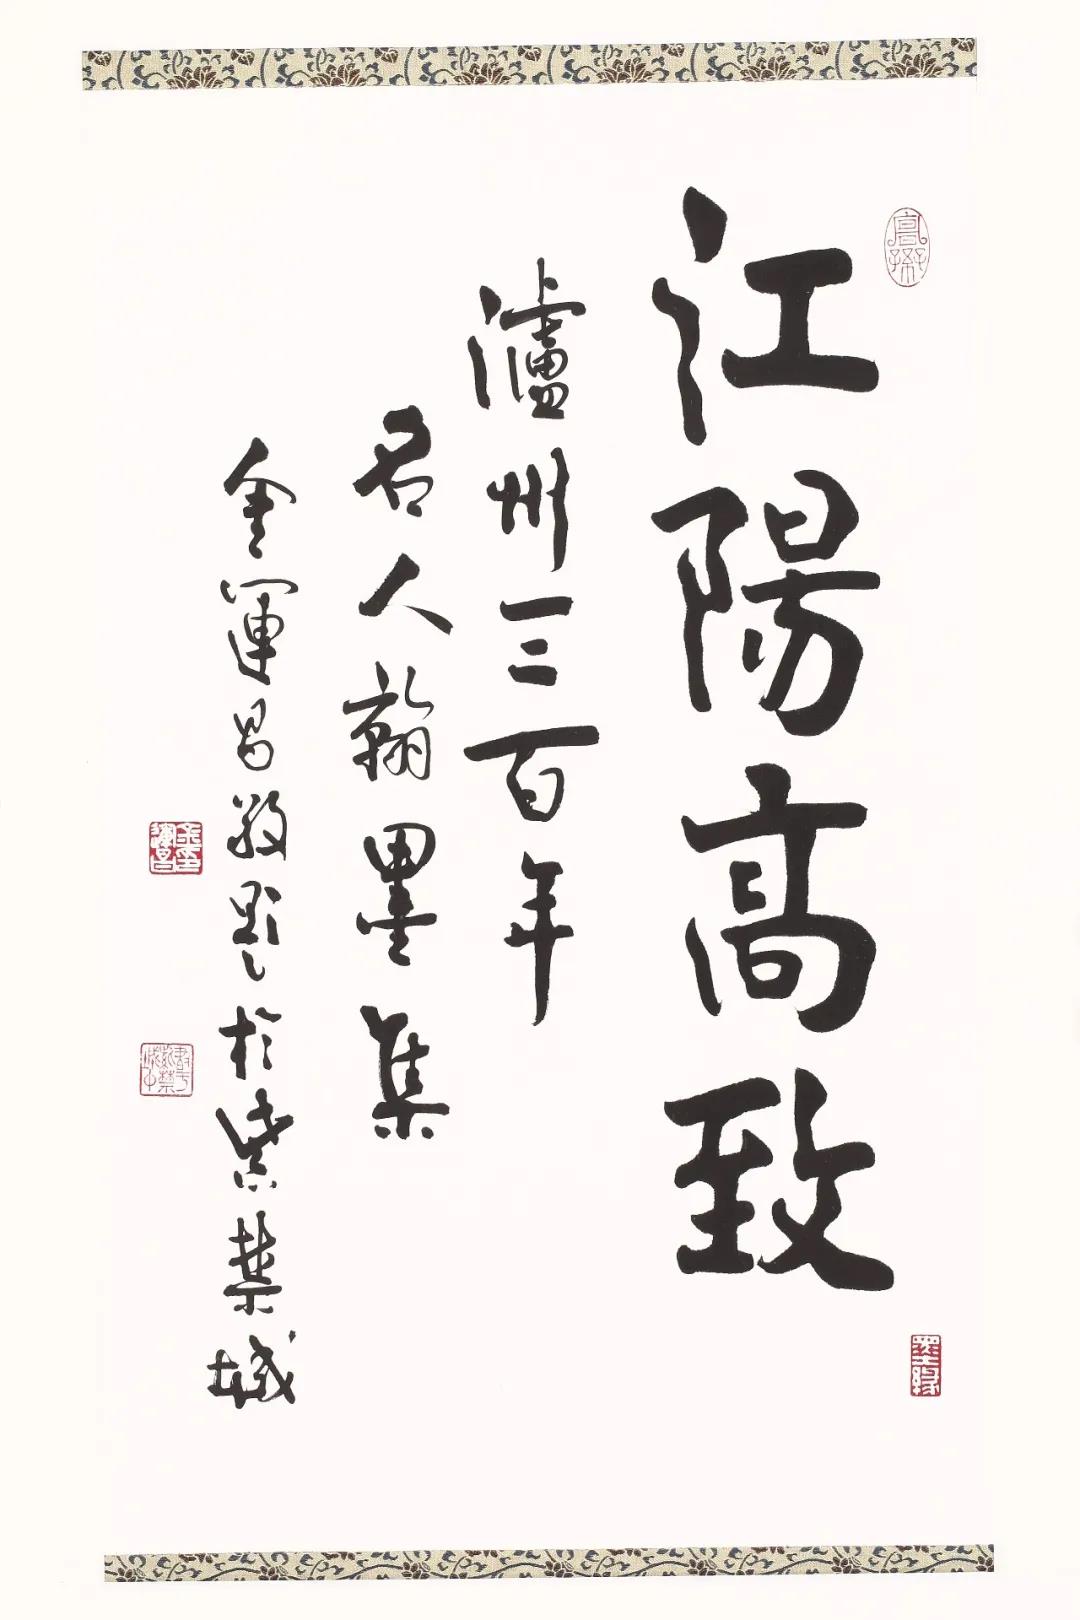 江陽高致
瀘州三百年
名人翰墨集
金運昌敬題於紫禁城
墨緣
金運昌